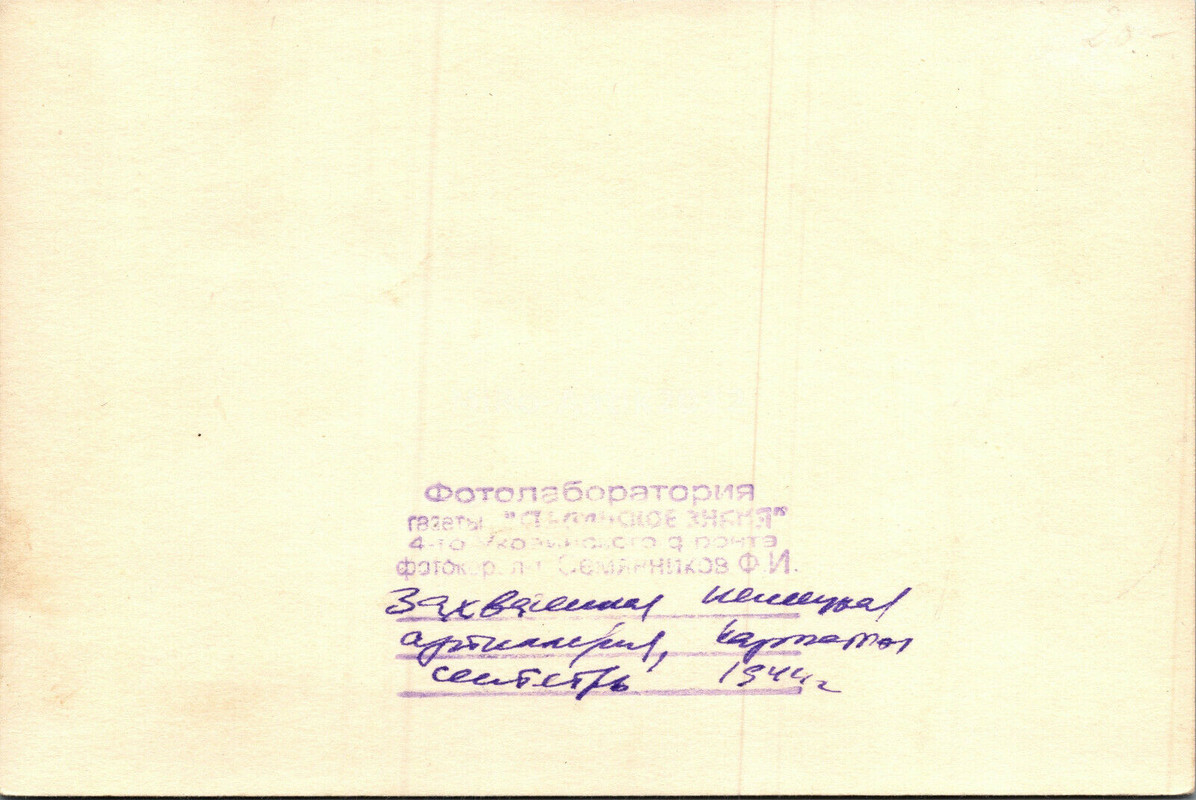 20.-
Фотолаборатория
газеты "СТАЛИНСКОЕ ЗНАМЯ"
4-го Украинского фронта
фотокор. л-т Семярников Ф.И.
Захваченная немецкая
артиллерия, Карпаты
сентябрь 1944г